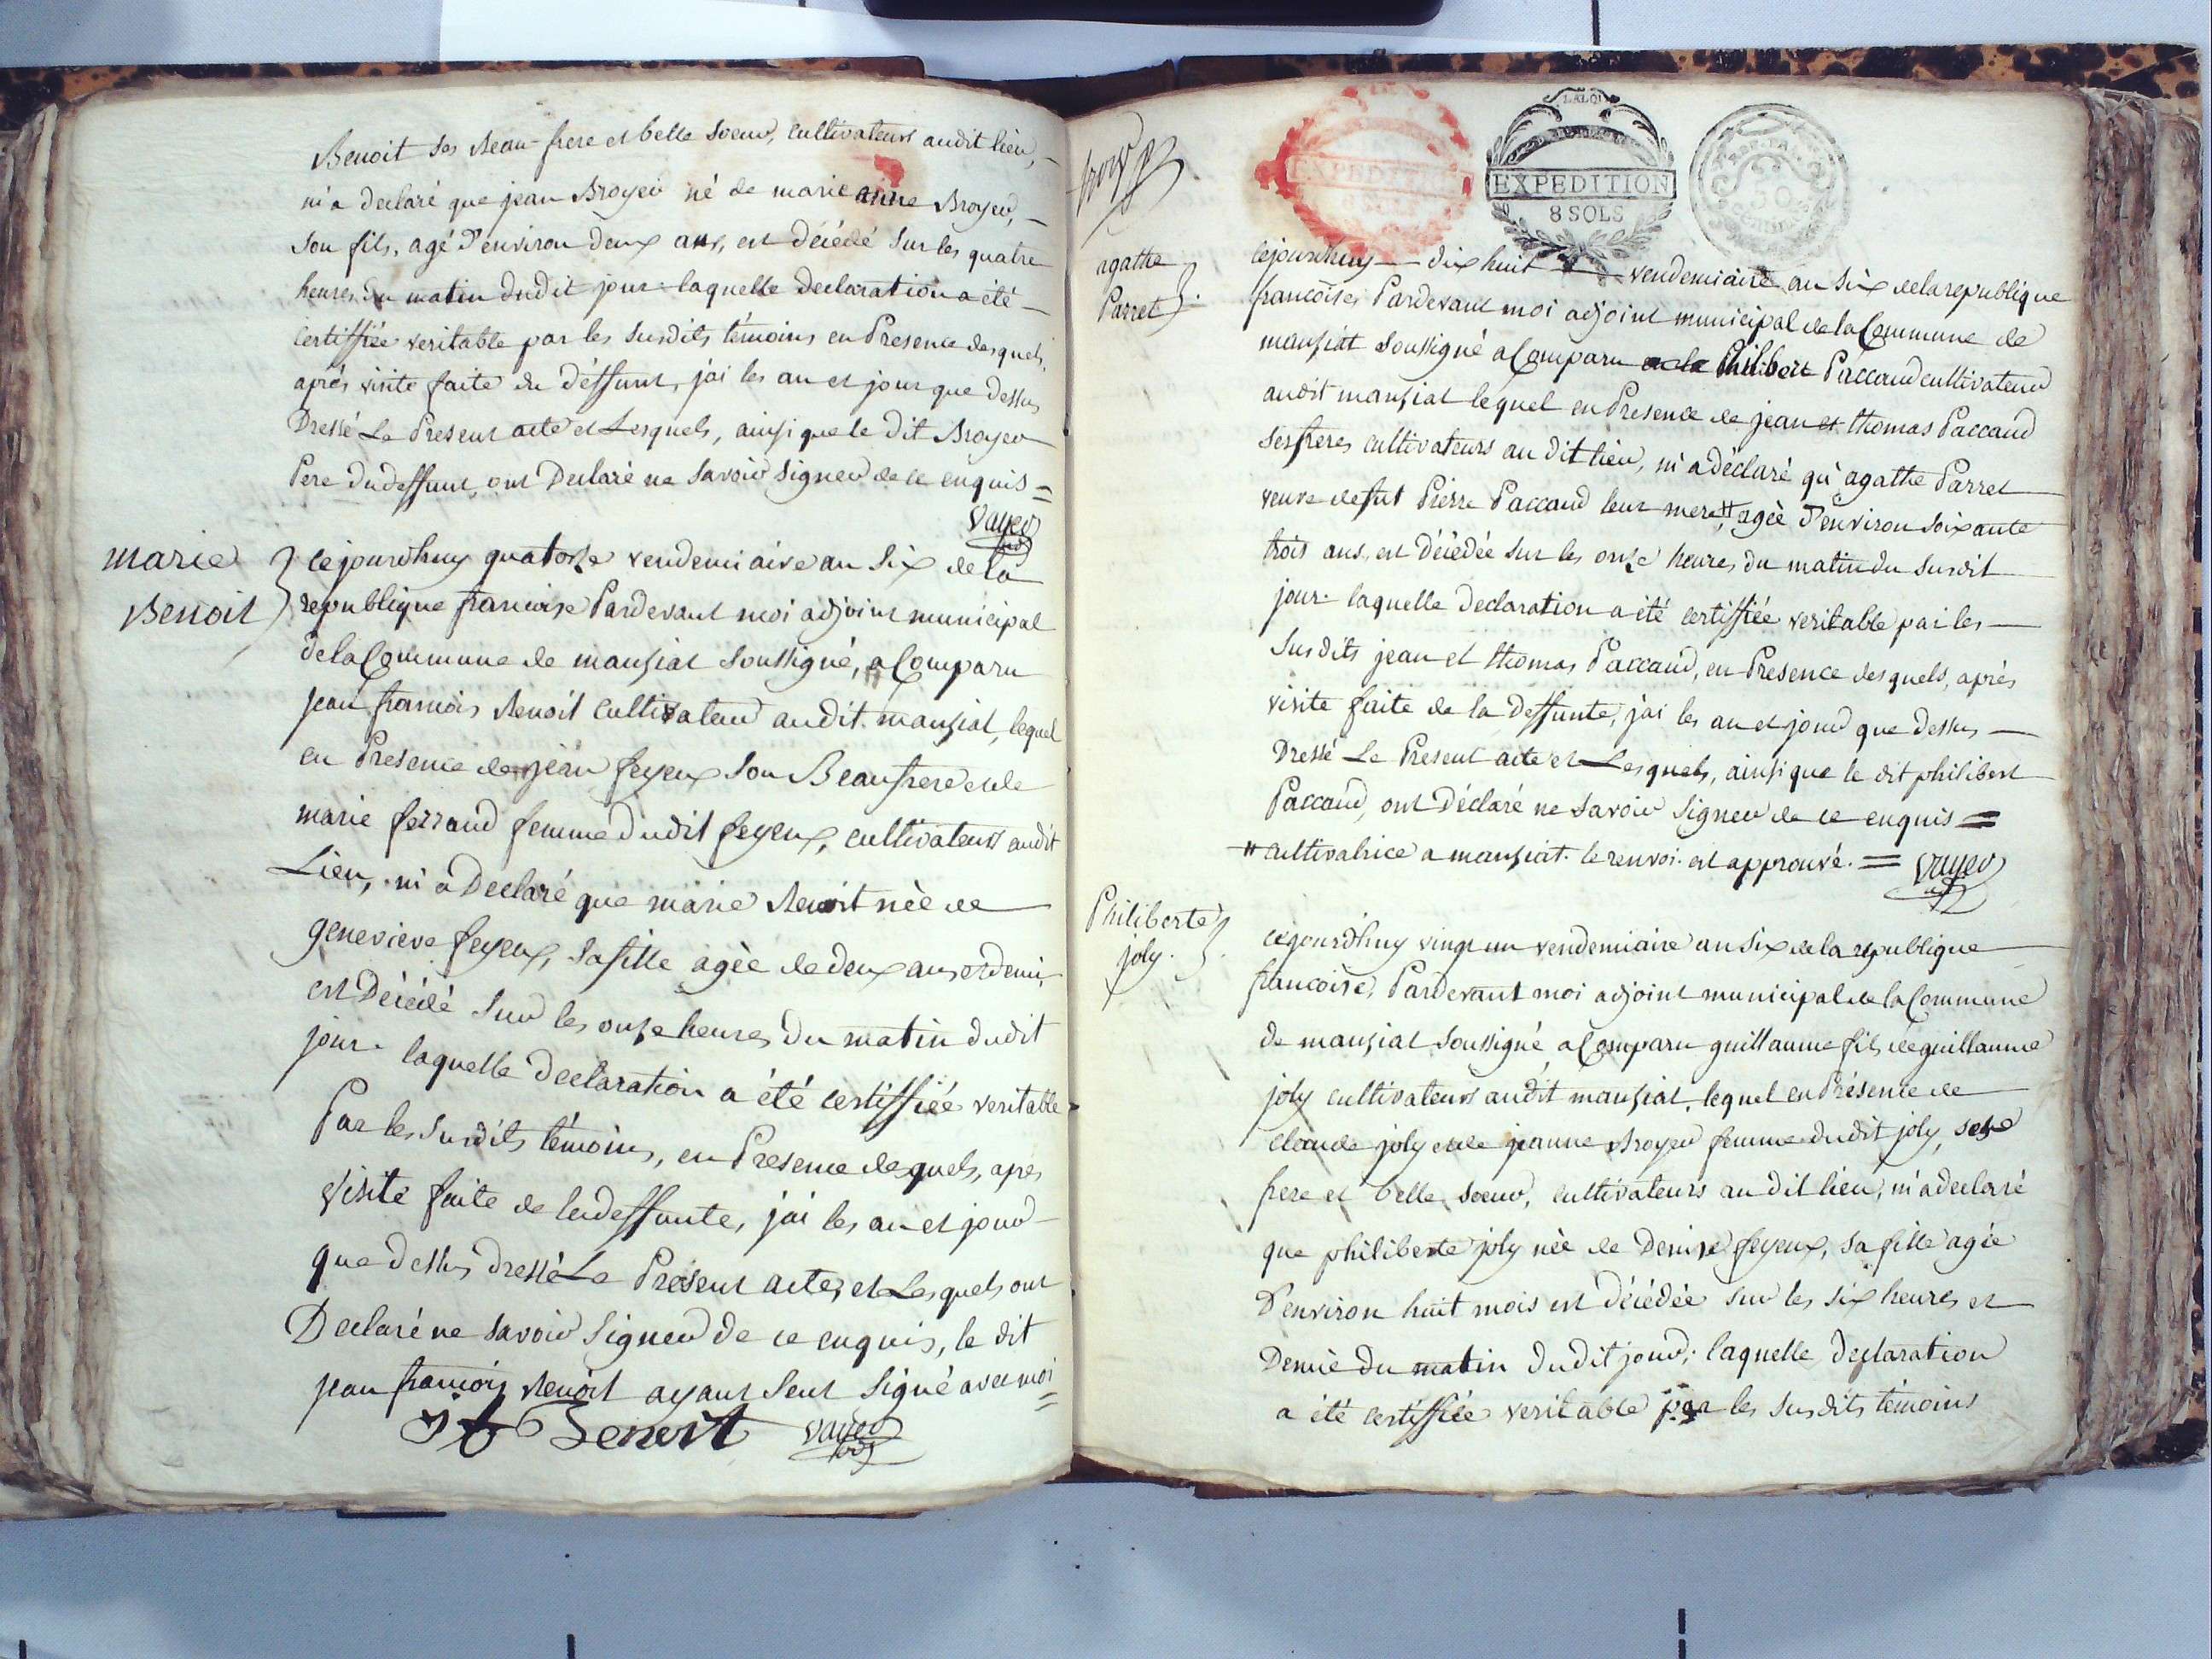 Benoit ses Beau-frere et belle soeur, cultivateurs audit lieu,
m'a declaré que jean Broyer né de marie anne Broyer,
son fils, agé d'environ deux ans, est décédé sur les quatre
heures du matin dudit jour. laquelle declaration a été
certiffiée veritable par les susdits témoins en Presence desquels,
aprés visite faite du déffunt, j'ai les an et jour que dessus
Dressé Le Present acte et Lesquels, ainsi que le dit Broyer
Pere du deffunt, ont Declaré ne savoir signer de ce enquis =
vayer
marie
Benoit
cejourdhuy quatorze vendemiaire an six de la
republique francoise Pardevant moi adjoint municipal
de la Commune de manziat soussigné, a Comparu
jean francois Benoit cultivateur audit manziat, lequel
en Presence de jean feyeux son Beaufrere et de
marie ferrand femme dudit feyeux, cultivateurs audit
Lieu, m'a Declaré que marie Benoit née de
genevieve feyeux, sa fille agée de deux ans et demi,
est Décédé sur les onze heures du matin dudit
jour. laquelle declaration a été certiffiée veritable
Par les susdits témoins, en Presence desquels, apres
visite faite de la deffunte, j'ai les an et jour
que dessus dressé Le Present acte, et Lesquels ont
Declaré ne savoir signer de ce enquis, le dit
jean francois Benoit ayant seul signé avec moi =
jf Benoit vayer
EXPEDITION
EXPEDITION
8 SOLS
50
agathe
Parret
cejourdhuy dix huit vendemiaire an six de la republique
francoise, Pardevant moi adjoint municipal de la Commune de
manziat soussigné a Comparu Philibert Paccaud cultivateur
audit manziat lequel en Presence de jean et thomas Paccaud
ses freres cultivateurs au dit lieu, m'a déclaré qu'agathe Parret
veuve de fut Pierre Paccaud leur mere, # agée d'environ soixante
trois ans, est décédée sur les onze heures du matin du susdit
jour. laquelle declaration a été certiffiée veritable par les
susdits jean et thomas Paccaud, en Presence desquels, aprés
visite faite de la deffunte, j'ai les an et jour que dessus
Dressé Le Present acte et Lesquels, ainsi que le dit philibert
Paccaud, ont Déclaré ne savoir signer de ce enquis =
# cultivatrice a manziat. le renvoi est approuvé. = vayer
Philiberte
joly.
cejourdhuy vingt un vendemiaire an six de la republique
francoise, Pardevant moi adjoint municipal de la Commune
de manziat soussigné a Comparu guillaume fils de guillaume
joly cultivateurs audit manziat, lequel en Présence de
claude joly et de jeanne Broyer femme dudit joly, ses
frere et belle soeur, cultivateurs au dit lieu, m'a declaré
que philiberte joly née de Denise feyeux, sa fille agée
D'environ huit mois est décédée sur les six heures et
Demie du matin dudit jour; laquelle declaration
a été certiffiée veritable par les susdits témoins